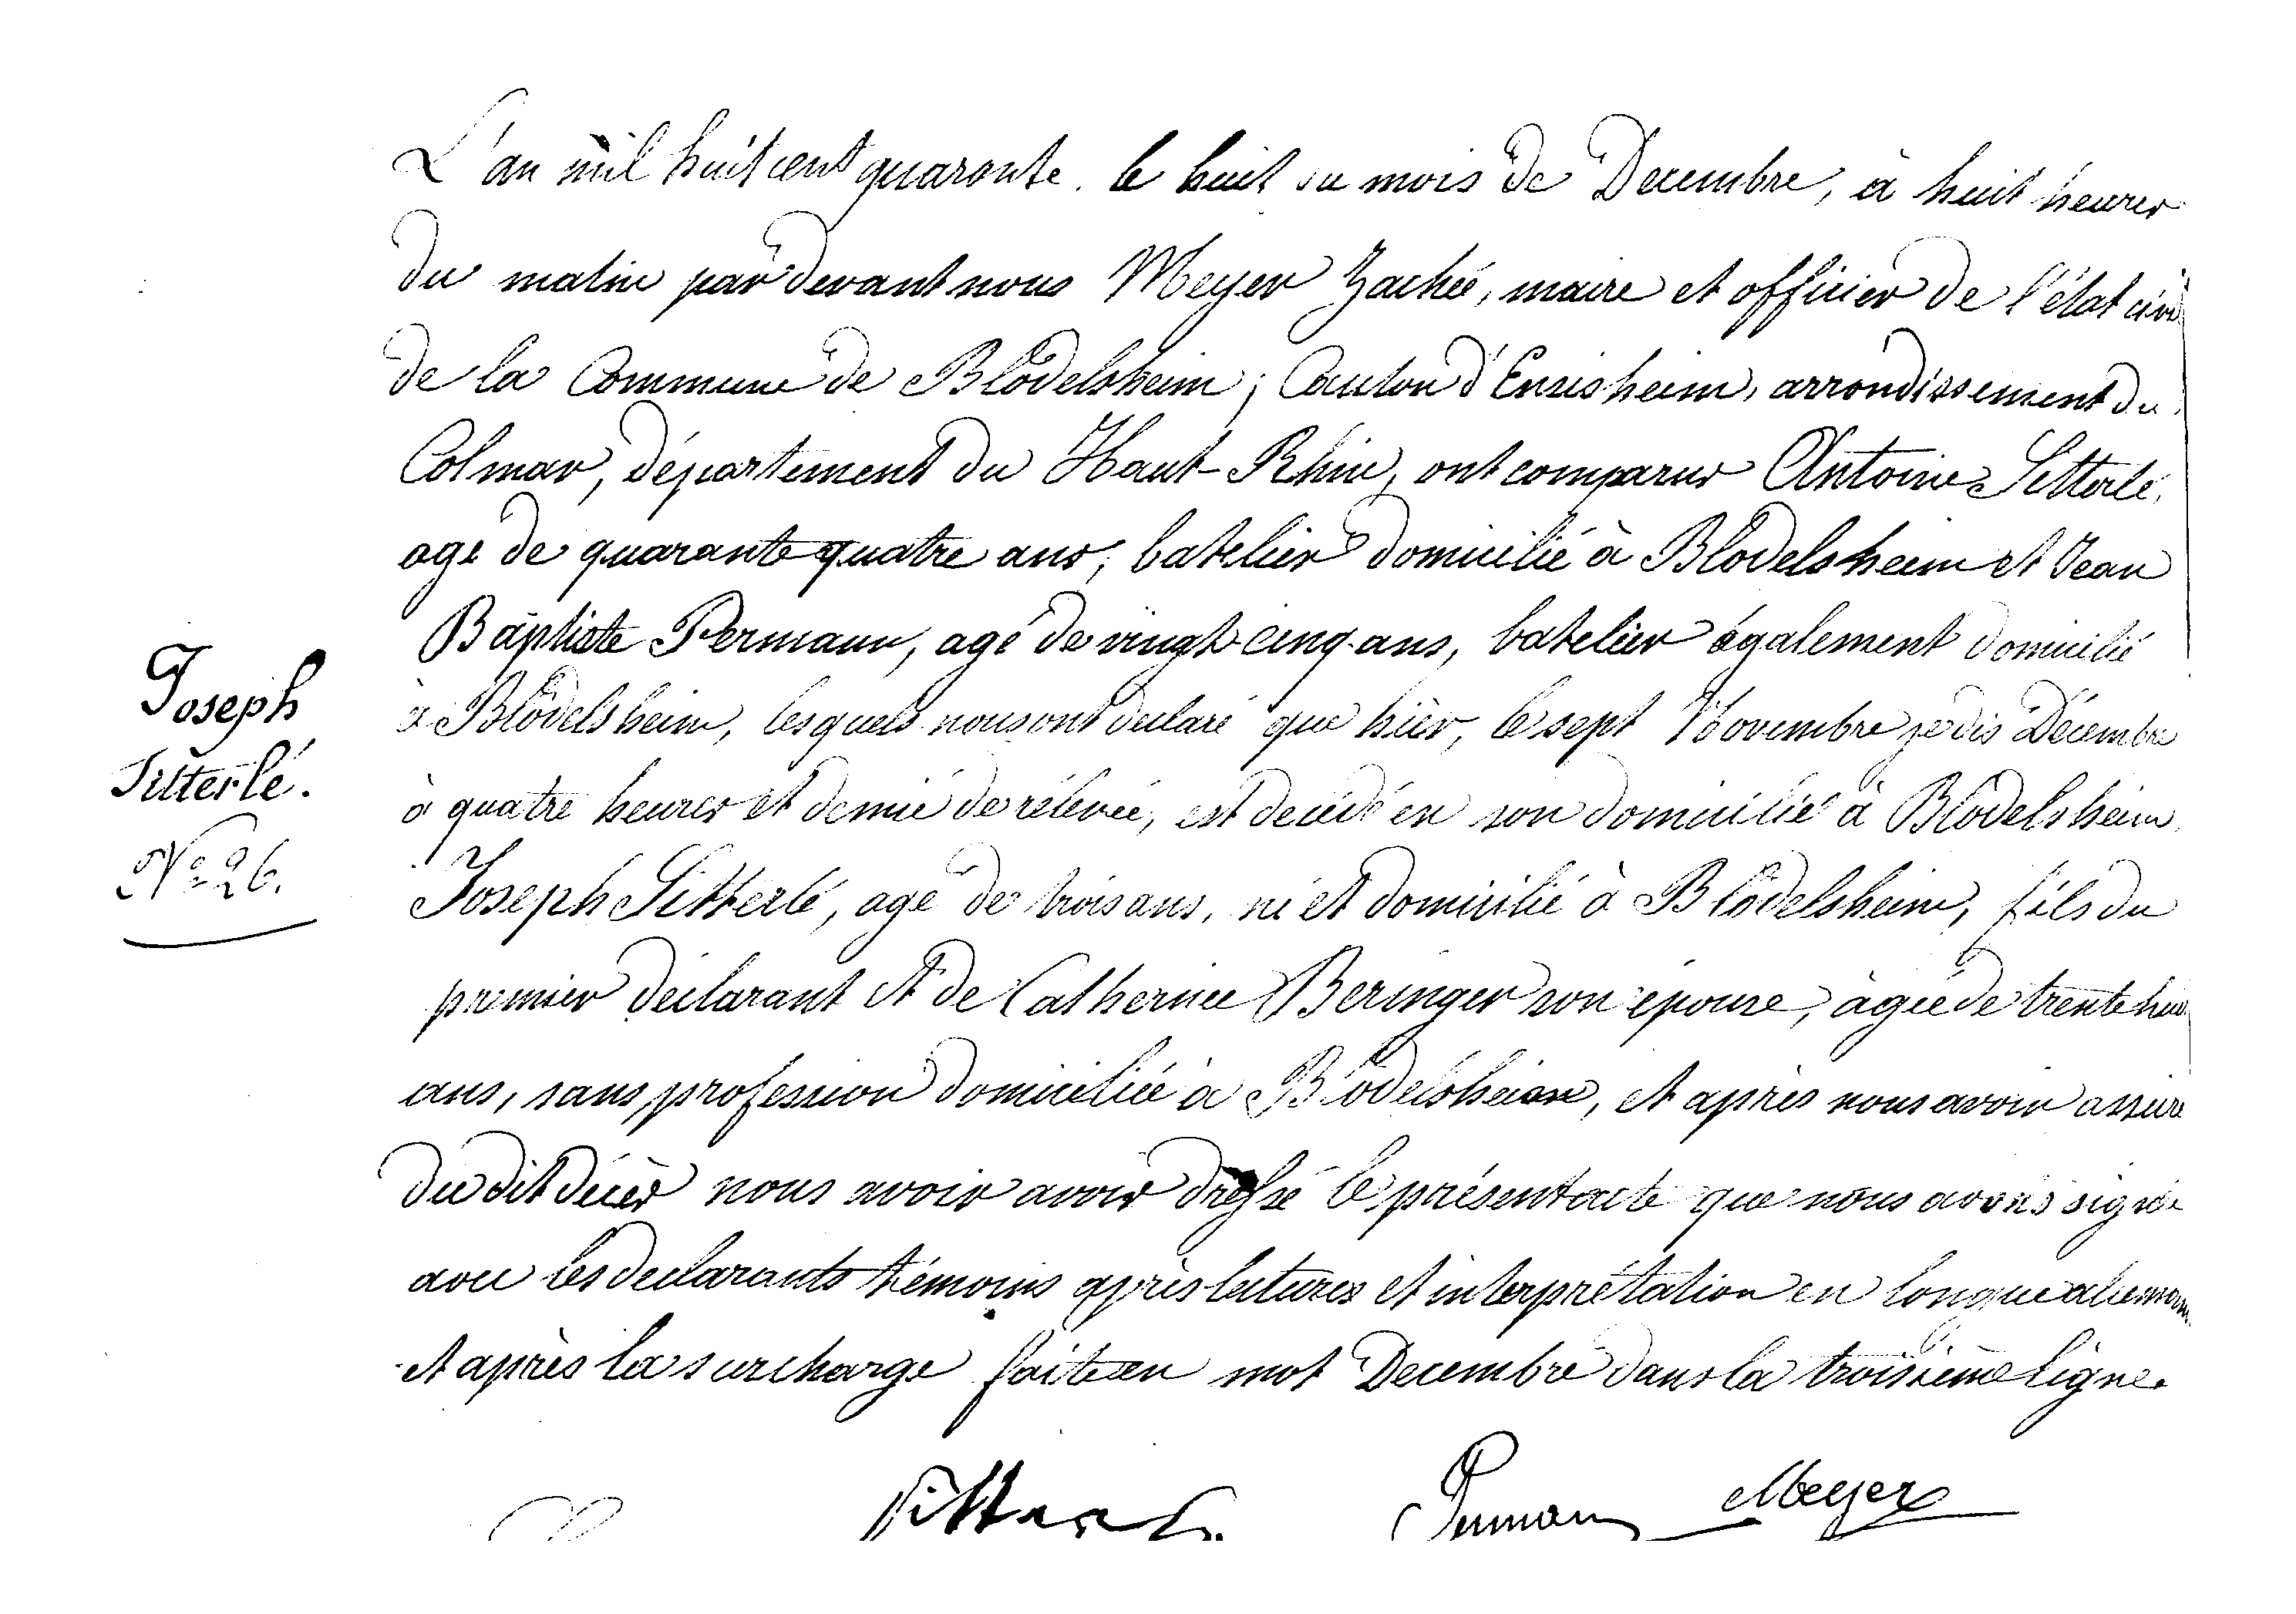 L'an mil huit cent quarante. le huit du mois de Decembre, à huit heures
du matin par devant nous Meyer Zachée, maire et officier de l'état civil
de la Commune de Blodelsheim, Canton d'Ensisheim, arrondissement de
Colmar, département du Haut-Rhin, ont comparus Antoine Sitterlé,
agé de quarante quatre ans, batelier domicilié à Blodelsheim et Jean
Baptiste Permann, agé de vingt cinq ans, batelier également domicilié
à Blodelsheim, lesquels nous ont declaré que hier, le sept Novembre je dis Décembre
à quatre heures et demie de rélevée, est decédé en son domicilié à Blodelsheim,
Joseph Sitterlé, agé de trois ans, né et domicilié à Blodelsheim, fils du
premier déclarant et de Catherine Beringer son épouse, àgée de trente huit
ans, sans profession domiciliée à Blodelsheim, et après nous avoir assuré
du dit décès nous avoir avoir dressé le présent acte que nous avons signé
avec les declarants témoins après lectures et interprétation en longue
et après la surcharge faite en mot Decembre dans la troisième ligne.
Joseph
Sitterlé.
N° 26.
Sitterle
Permann
Meyer